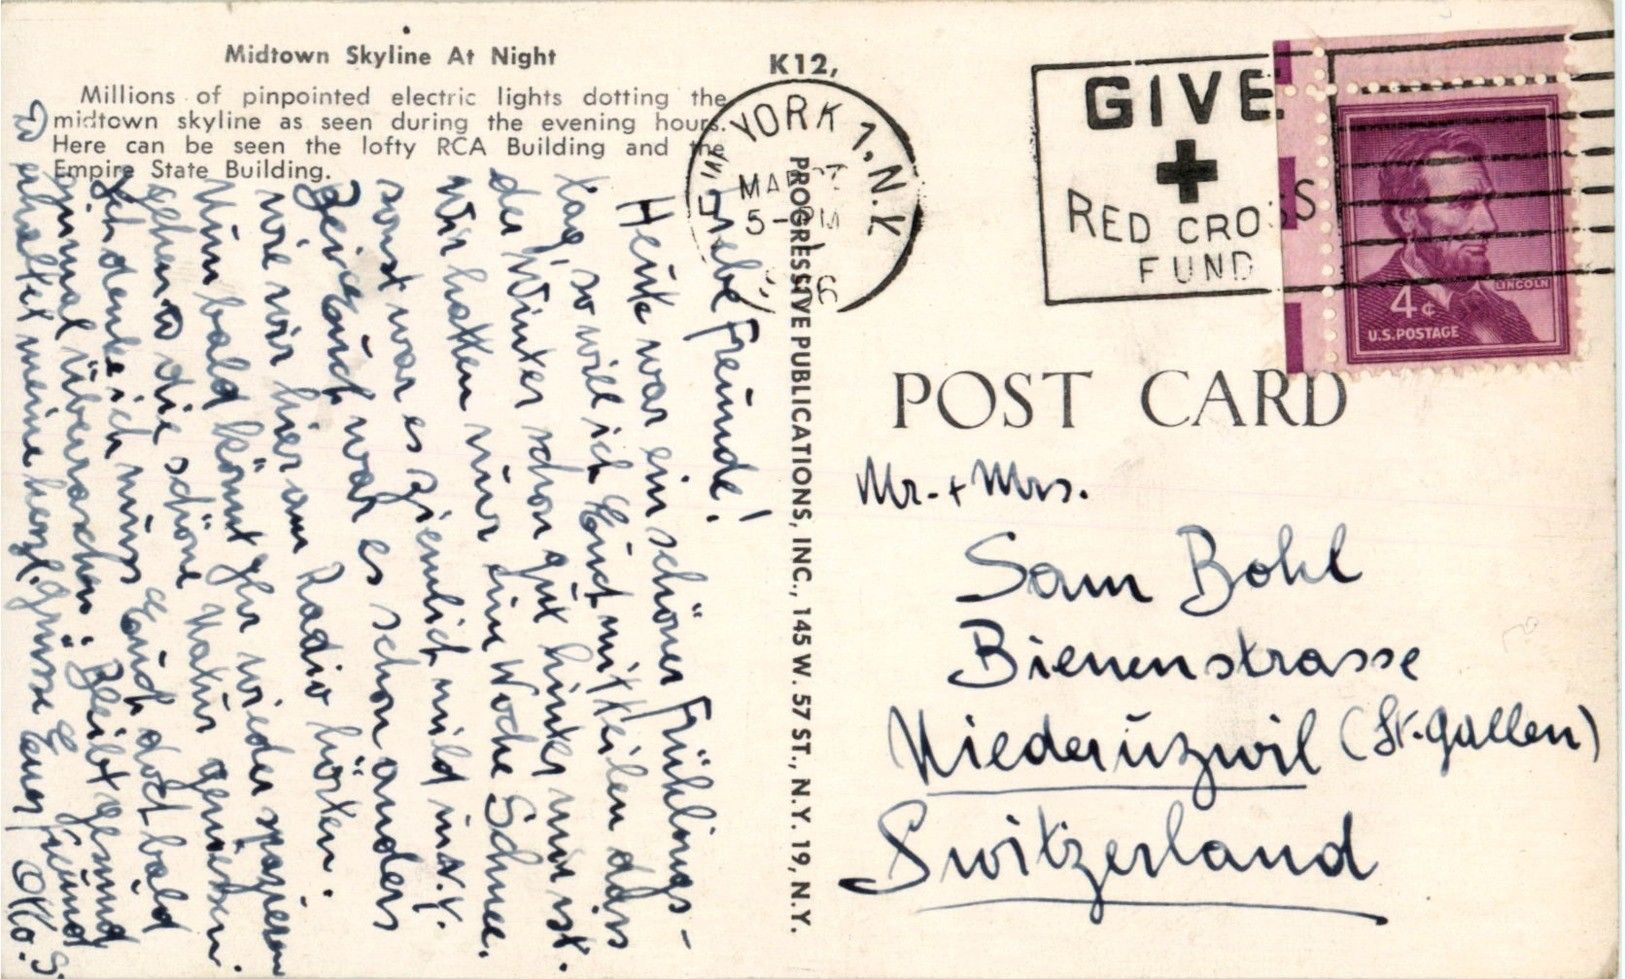 Midtown Skyline At Night
Millions of pinpointed electric lights dotting the
midtown skyline as seen during the evening hours.
Here can be seen the lofty RCA Building and the
Empire State Building.
Liebe Freunde!
Heute war ein schöner Frühlings-
tag, so will ich Euch mitteilen dass
der Winter schon gut hinter uns ist.
Wir hatten nur ein Woche Schnee.
sonst war es ziemlich mild in N.Y.
Bei Euch war es schon anders
wie wir hier am Radio hörten.
Nun bald könnt Ihr wieder spazieren
gehen die schöne Natur geniessen.
Ich denke ich muss Euch doch bald
einmal überraschen. Bleibt gesund
erhaltet meine herzl. Grüsse Euer Freund
Otto. S.
PROGRESSIVE PUBLICATIONS, INC., 145 W. 57 ST., N.Y. 19, N.Y.
K12,
YORK 1, N.Y.
5-PM
GIVE
RED CROSS
FUND
LINCOLN
4¢
U.S. POSTAGE
POST CARD
Mr. + Mrs.
Sam Bohl
Bienenstrasse
Niederuzwil (St. Gallen)
Switzerland